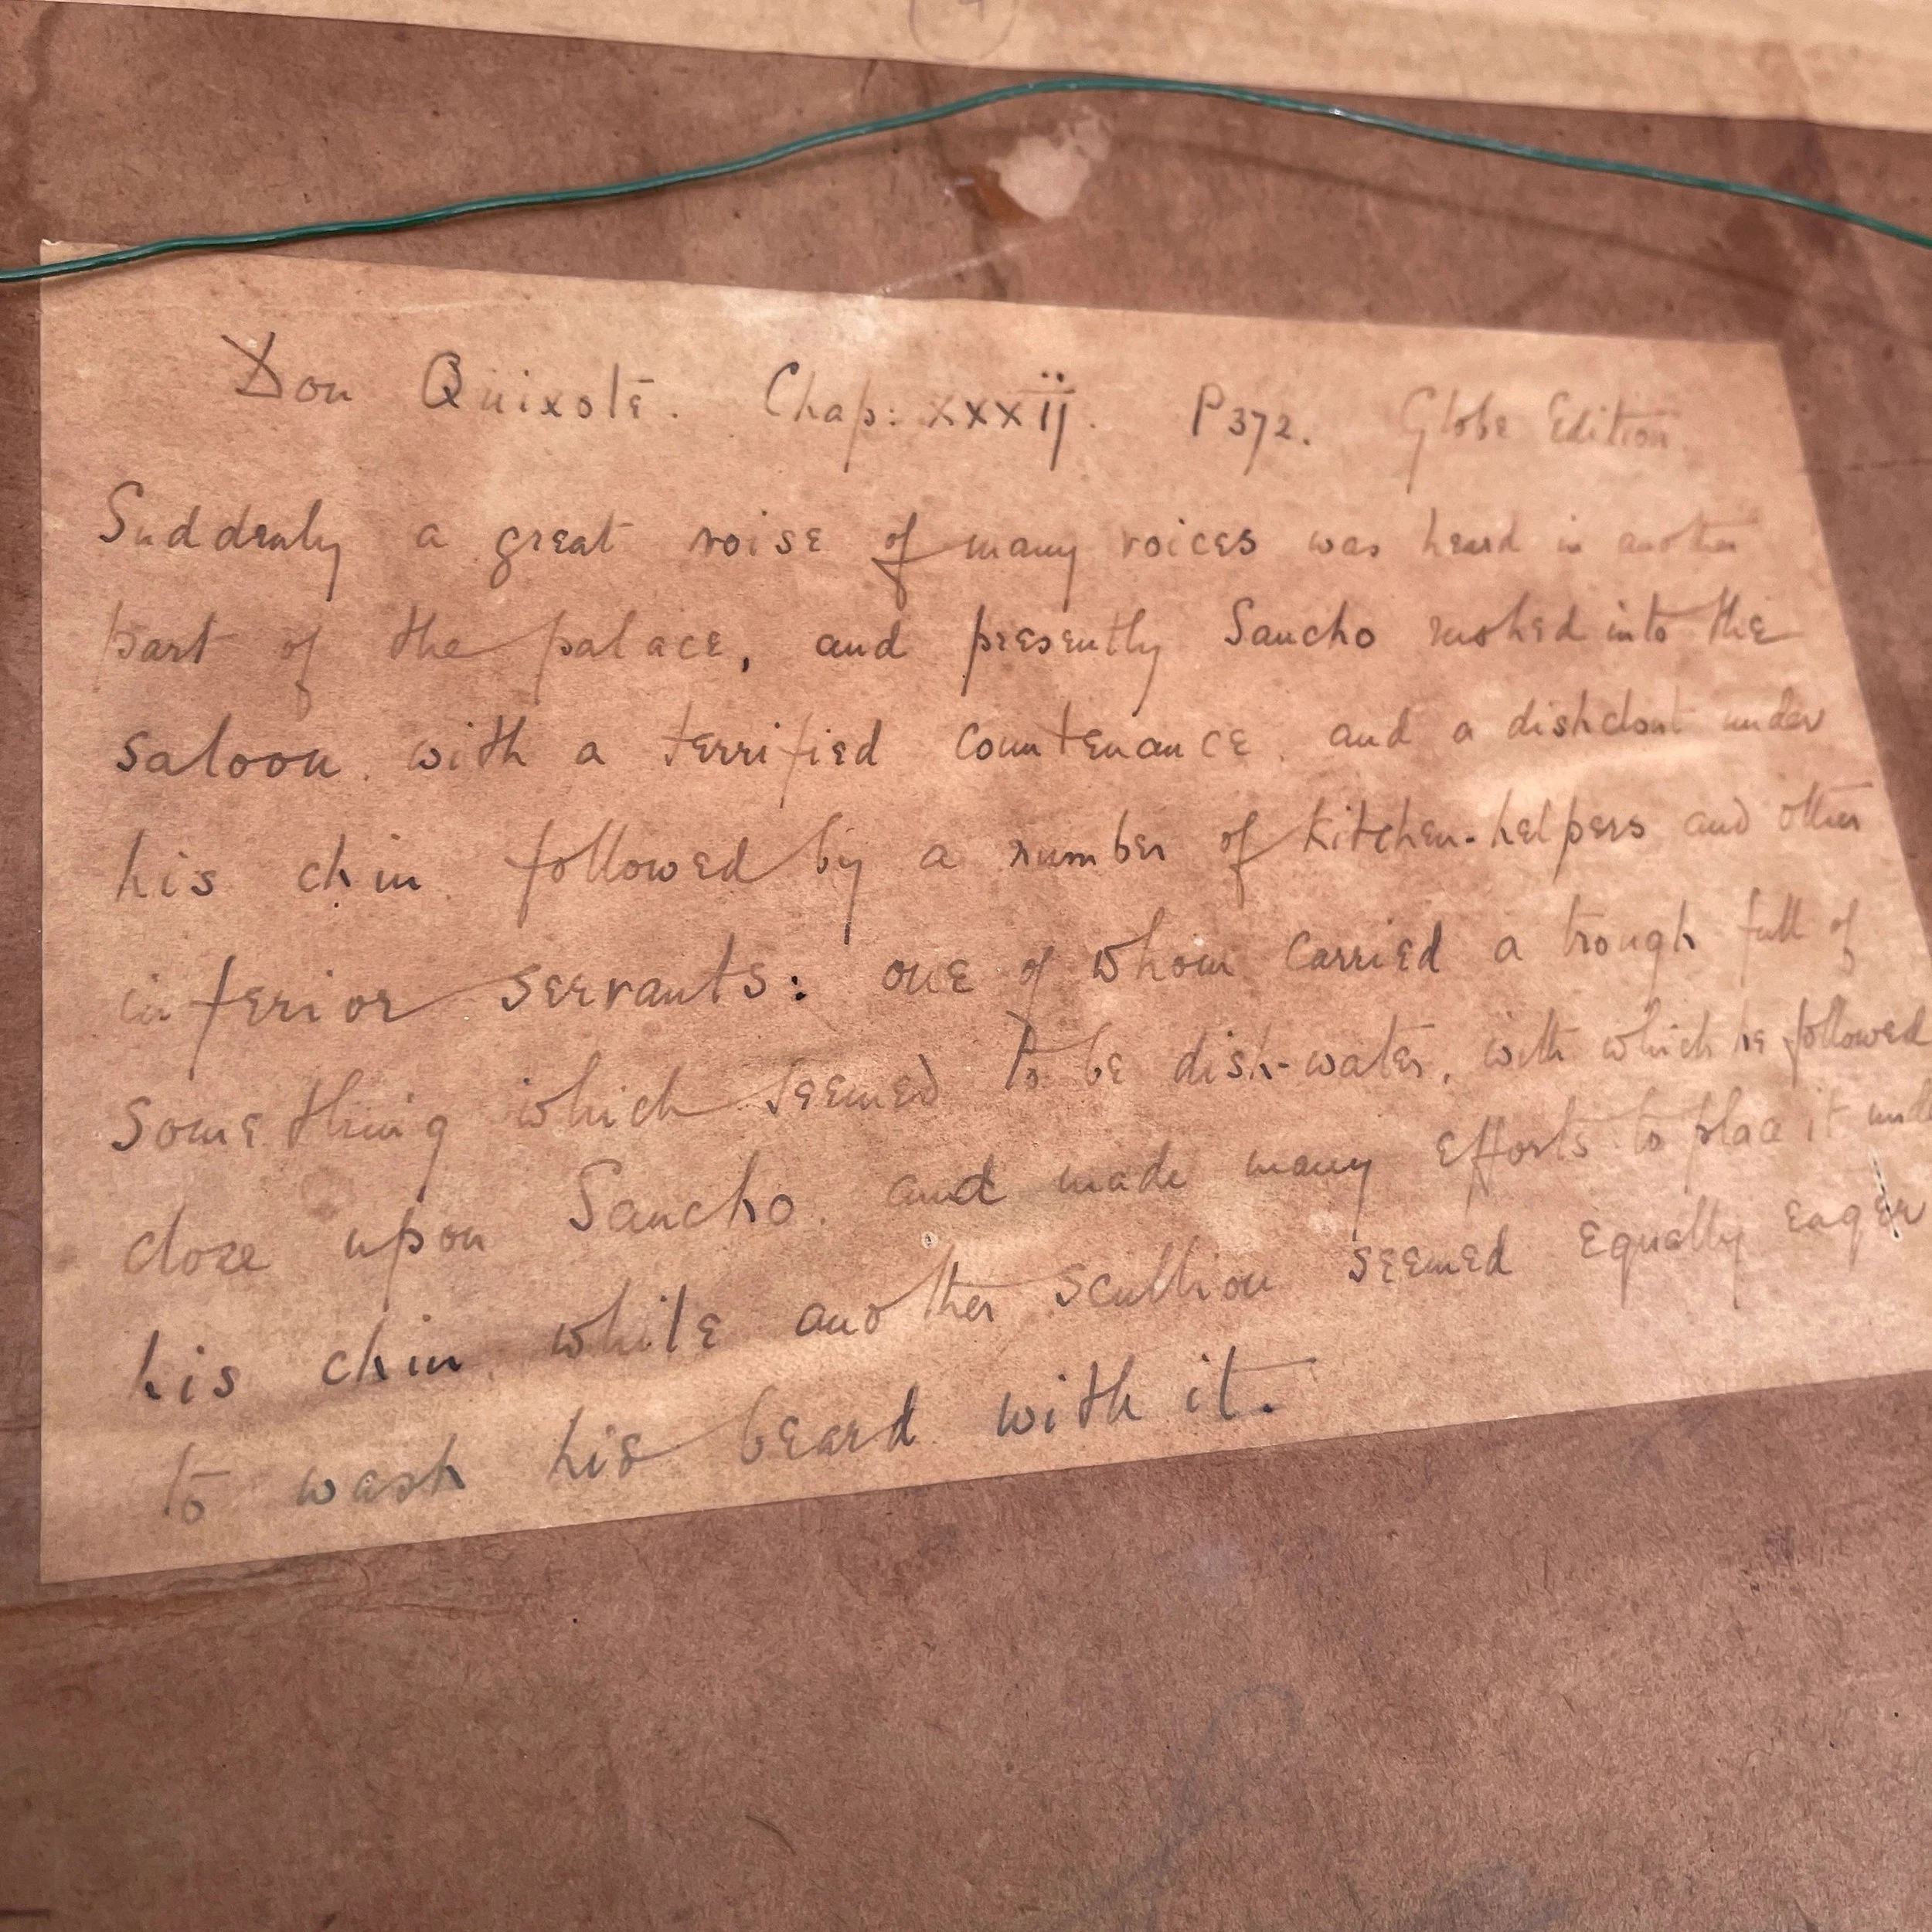 Don Quixote. Chap: xxxij. P372. Globe Edition
Suddenly a great noise of many voices was heard in another
part of the palace, and presently Sancho rushed into the
saloon with a terrified countenance and a dishclout under
his chin followed by a number of kitchen-helpers and other
inferior servants: one of whom carried a trough full of
something which seemed to be dish-water, with which he followed
close upon Sancho. and made many efforts to place it und
his chin while another scullion seemed equally eager
to wash his beard with it.